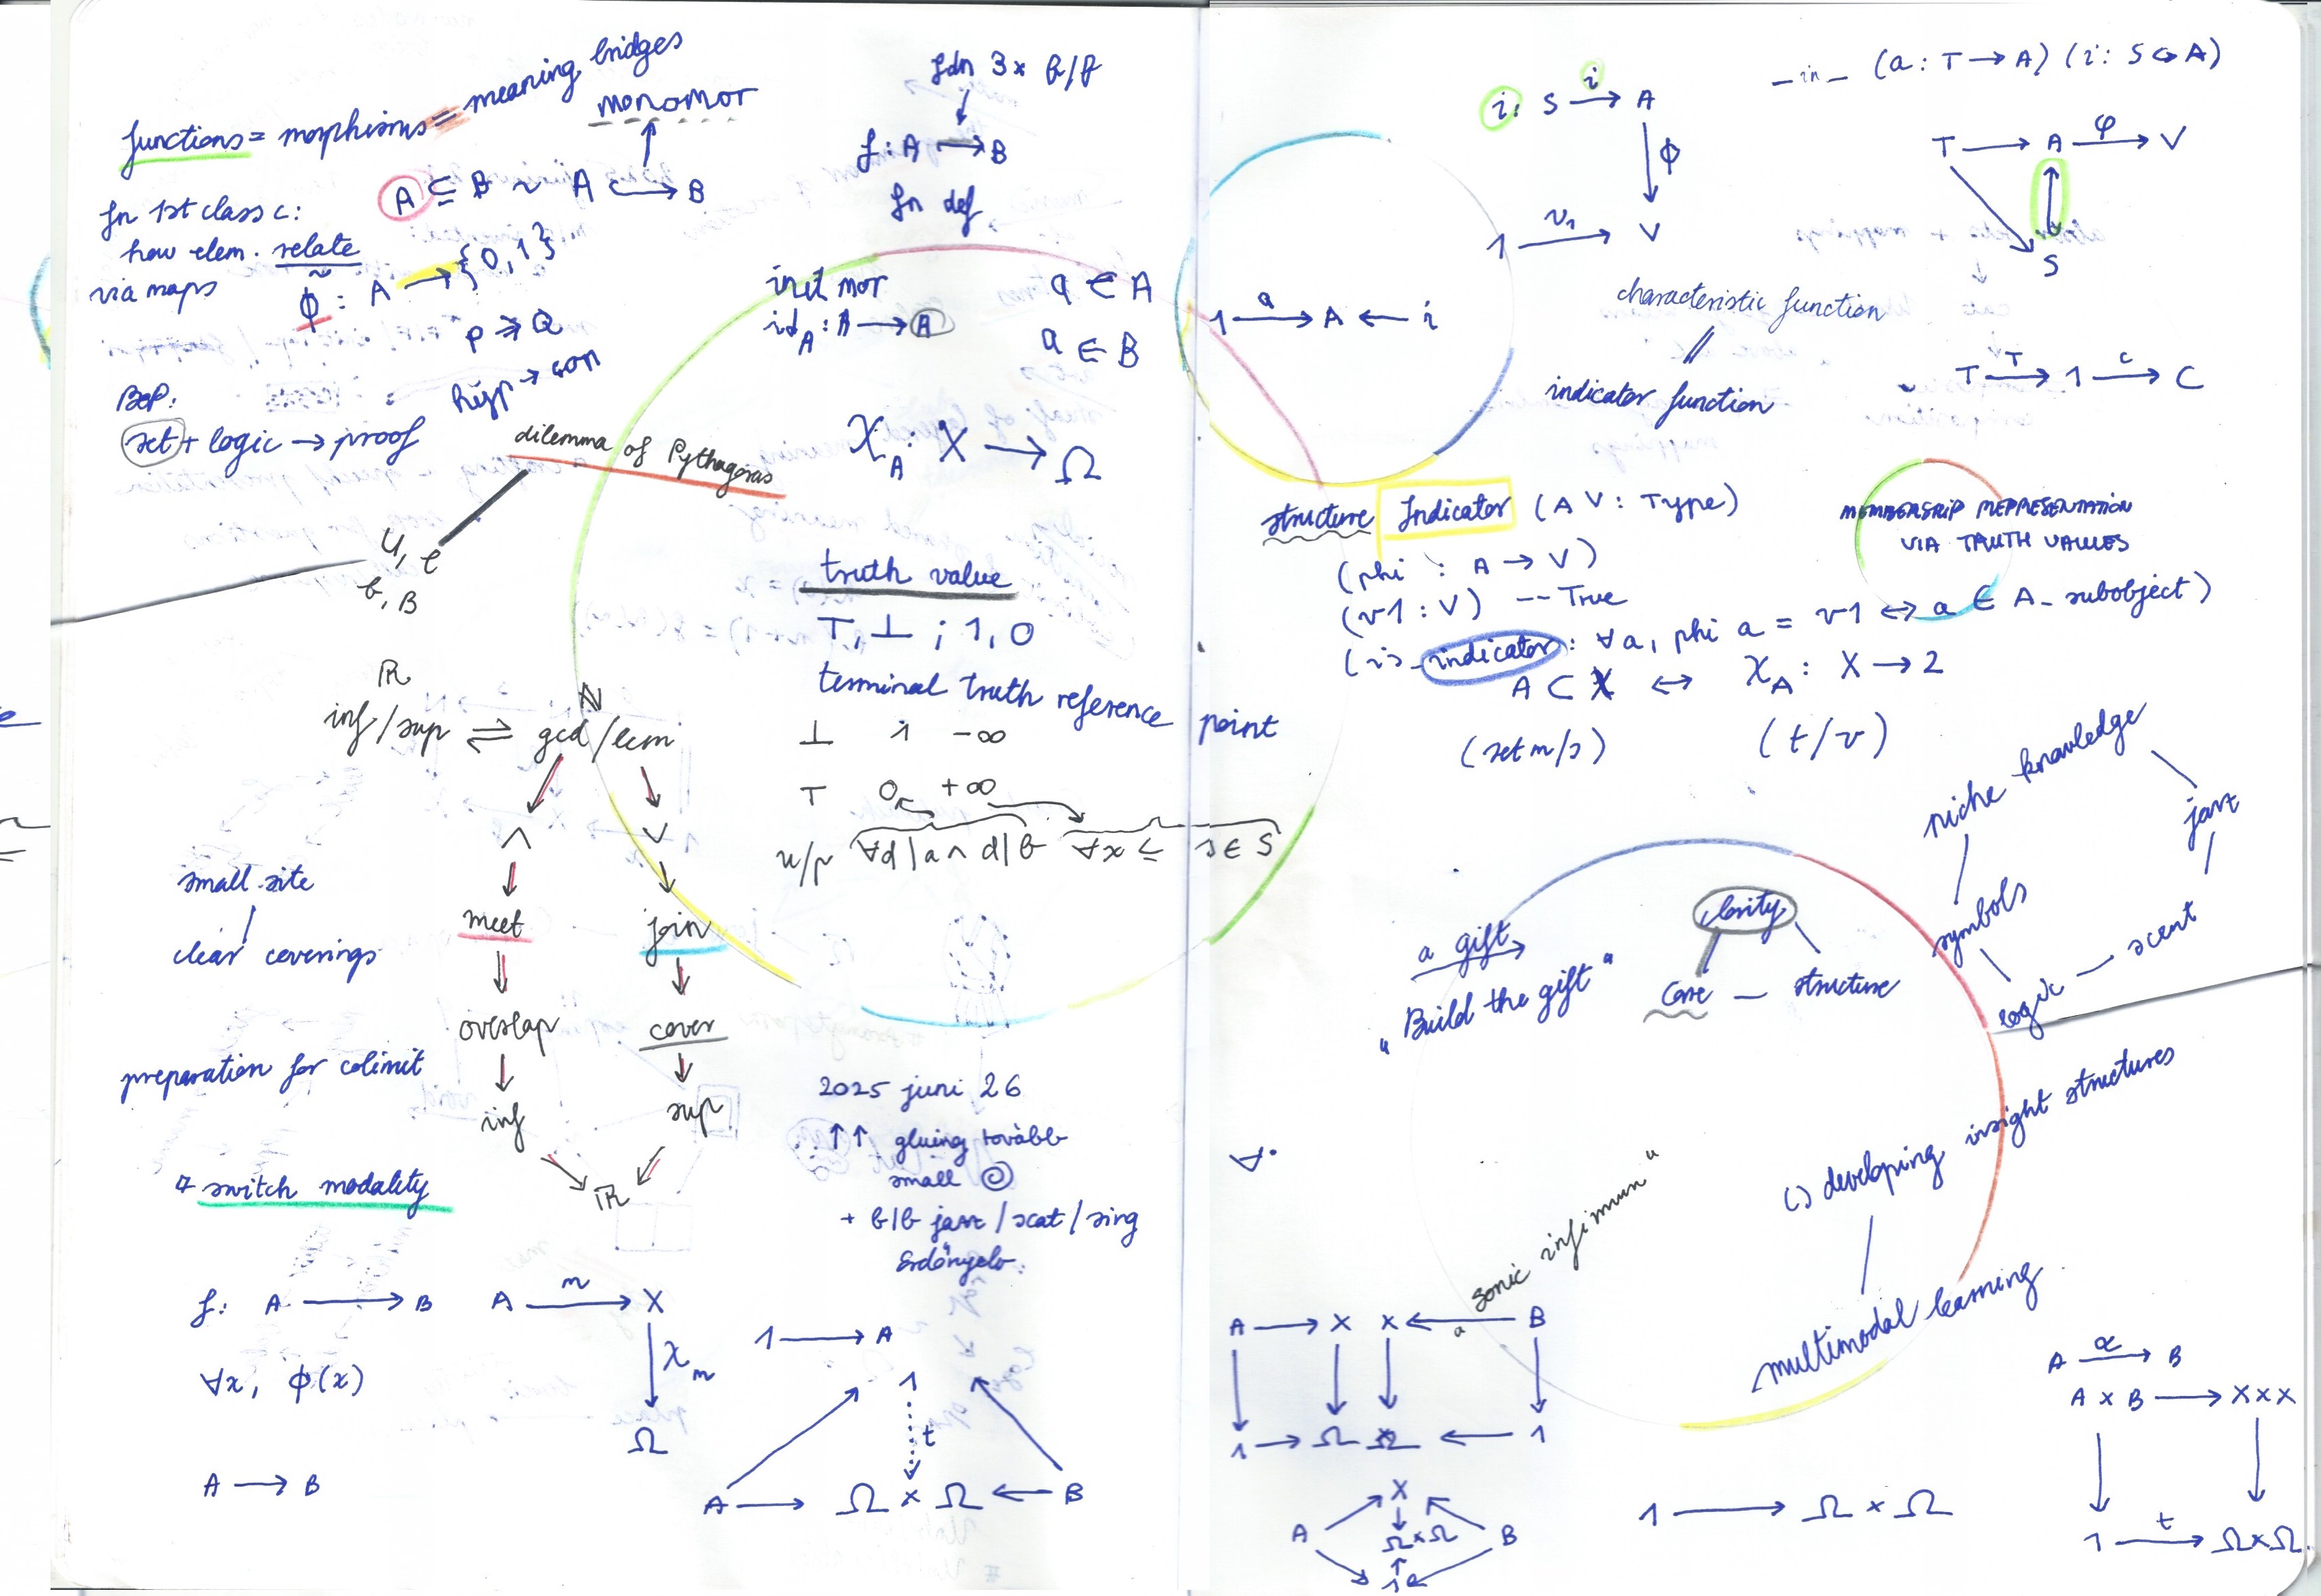 functions = morphisms = meaning bridges
monomor
A ⊆ B ~ A ↪ B
fn 1st class c:
how elem. relate
via maps
ϕ : A → {0, 1}
P ⇒ Q
hyp → con
BoP:
set + logic → proof
dilemma of Pythagoras
U, e
b, B
fdn 3x B/B
f : A → B
fn def
init mor
id_A : A → A
a ∈ A
a ∈ B
χ_A : X → Ω
truth value
⊤, ⊥ ; 1, 0
terminal truth reference point
⊥ 1 -∞
⊤ 0 +∞
u/p ∀d | a ∧ d | b ∀x ≤ s ∈ S
ℝ
inf/sup ⇌ gcd/lcm
ℕ
∧ ∨
meet join
overlap cover
inf sup
ℝ
small site
clear coverings
preparation for colimit
switch modality
2025 juni 26
↑↑ gluing tovább
small
+ b/b jazz / scat / sing
Erdőnyelv.
f: A → B
∀x, ϕ(x)
A → B
A m → X
χ_m
Ω
1 → A
1
t
A → Ω × Ω ← B
i: S i → A
ϕ
1 v1 → V
_in_ (a : T → A) (i : S ↪ A)
T → A φ → V
S
1 a → A ← i
characteristic function
//
indicator function
T T → 1 c → C
structure Indicator (A V : Type)
(phi : A → V)
(v1 : V) -- True
(is_indicator : ∀a, phi a = v1 ↔ a ∈ A_subobject)
A ⊂ X ↔ χ_A : X → 2
(set m/s) (t/v)
MEMBERSHIP REPRESENTATION
VIA TRUTH VALUES
niche knowledge
jazz
symbols
scent
logic
a gift
„Build the gift"
clarity
core — structure
(.) developing insight structures
multimodal learning
∀.
sonic infimum"
A → X X ← a B
1 → Ω Ω ← 1
X
A Ω×Ω B
1
1 → Ω × Ω
A α → B
A × B → X×X
1 t → Ω×Ω.